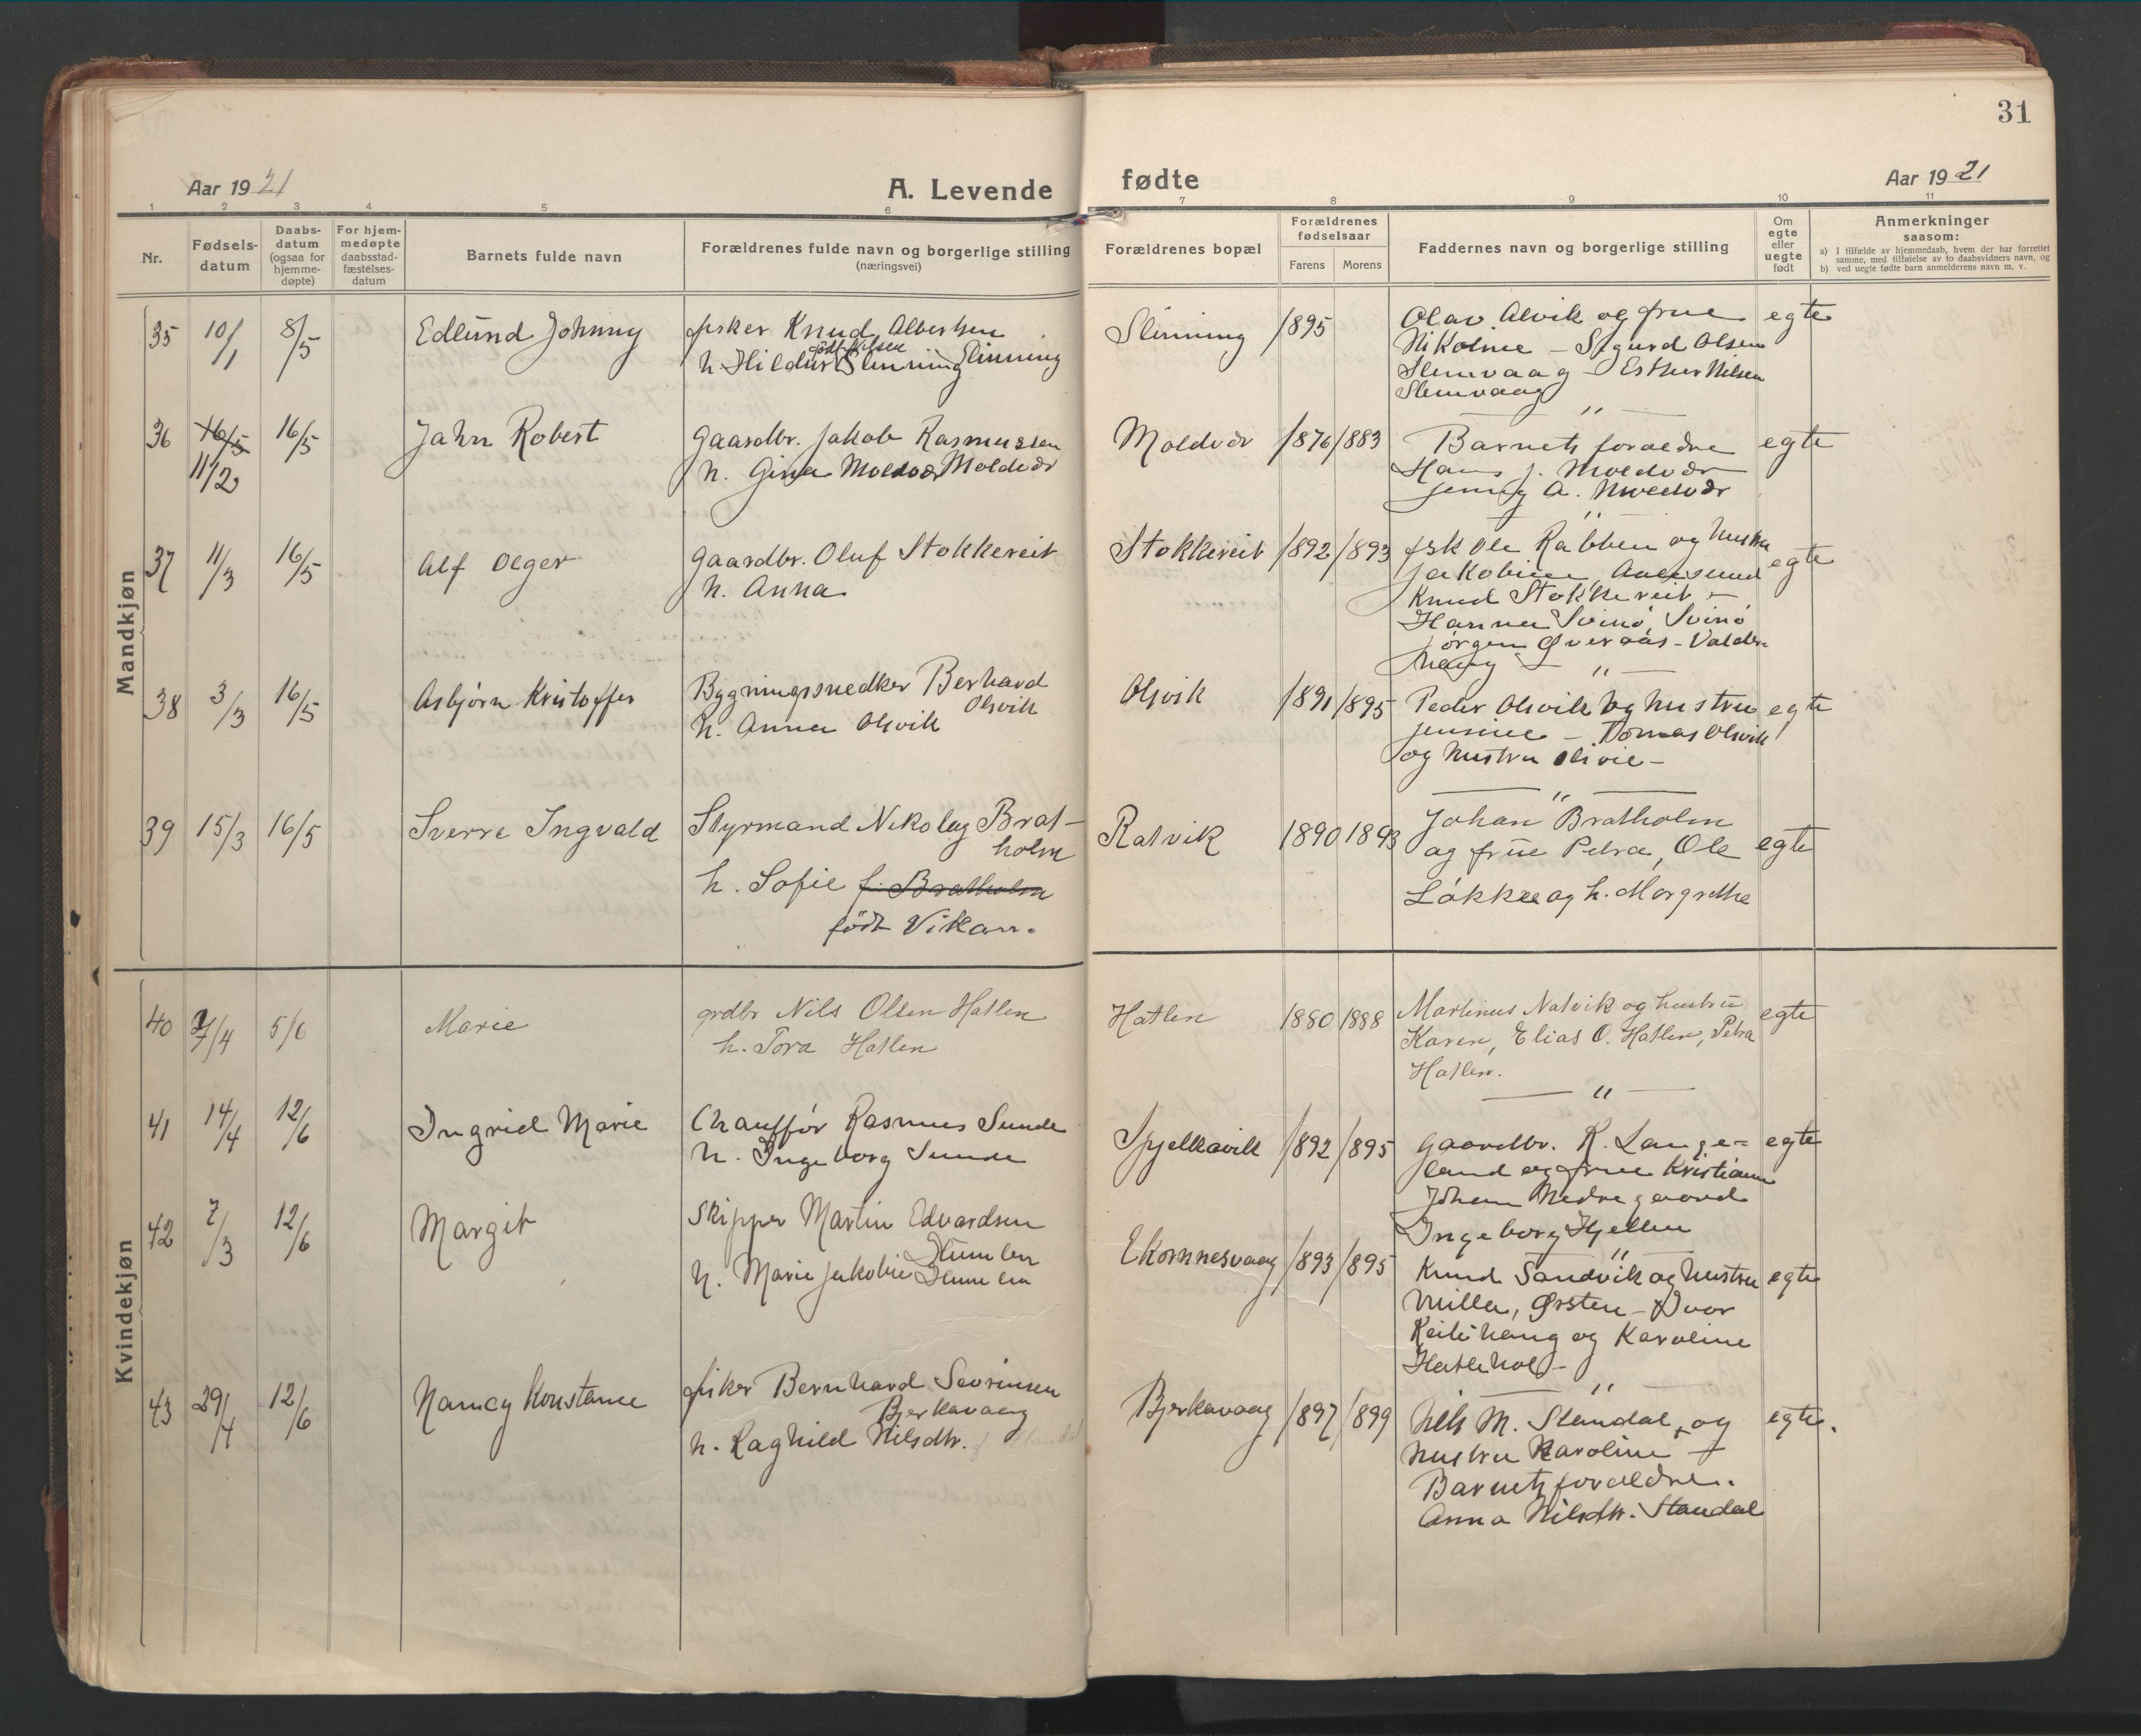 31
Aar 1921
A. Levende
fødte
Aar 1921
1 2 3 4 5 6 7 8 9 10 11
Nr.
Fødsels-
datum
Daabs-
datum
(ogsaa for
hjemme-
døpte)
For hjem-
medøpte
daabsstad-
fæstelses-
datum
Barnets fulde navn
Forældrenes fulde navn og borgerlige stilling
(næringsvei)
Forældrenes bopæl
Forældrenes
fødselsaar
Farens
Morens
Faddernes navn og borgerlige stilling
Om
egte
eller
uegte
født
Anmerkninger
saasom:
a) I tilfælde av hjemmedaab, hvem der har forrettet
samme, med tilføielse av to daabsvidners navn, og
b) ved uegte fødte barn anmelderens navn m. v.
Mandkjøn
35 10/1 8/5 Edlund Johnny
fisker Knud Albertsen
født Nilsen
h. Hildur Slinning Slinning
Slinning 1895
Olav Alvik og frue
Nikoline - Sigurd Olsen
Slemvaag - Esther Nilsen
Slemvaag
egte
36 16/5 11/2 16/5 Jahn Robert
Gaardbr. Jakob Rasmussen
h. Gina Moldvær Moldvær
Moldvær 1876 1883
Barnets foraeldre
Hans J. Moldvær
Jenny A. Moldvær
egte
37 11/3 16/5 Alf Olger
Gaardbr. Oluf Stokkereit
h. Anna
Stokkereit 1892 1893
fsk Ole Rabben og hustru
Jakobine, Aalesund
Knud Stokkereit -
Hanna Svinø, Svinø
Jørgen Øveraas - Valder-
haug
egte
38 3/3 16/5 Asbjørn Kristoffer
Bygningssnedker Berhard
Olsvik
h. Anna Olsvik
Olsvik 1891 1895
Peder Olsvik og hustru
Jensine - Tomas Olsvik
og hustru Olivie -
egte
39 15/3 16/5 Sverre Ingvald
Styrmand Nikolay Brat-
holm
h. Sofie f. Bratholm
født Vikan.
Ratvik 1890 1893
Johan Bratholm
og frue Petra, Ole
Løkke og h. Margrethe
egte
Kvindekjøn
40 7/4 5/6 Marie
grdbr Nils Olsen Hatlen
h. Tora Hatlen
Hatlen 1880 1888
Martinus Natvik og hustru
Karen, Elias O. Hatlen, Petra
Hatlen.
egte
41 14/4 12/6 Ingrid Marie
Chauffør Rasmus Sunde
h. Ingeborg Sunde
Spjelkavik 1892 1895
Gaardbr. R. Lange-
land og frue Kristianne
Johan Nedregaard
Ingeborg Hjellen
egte
42 7/3 12/6 Margit
Skipper Martin Edvardsen
Humlen
h. Marie Jakobie Humlen
Ekornnesvaag 1893 1895
Knud Sandvik og hustru
Milla, Ørsten - Ivar
Karoline
egte
43 29/4 12/6 Nancy Konstance
fisker Bernhard Sevrinsen
Bjerkavaag
h. Raghild Nilsdtr.
Bjerkavaag 1897 1899
Nils M. Standal, og
hustru Karoline -
Barnets foraeldre.
Anna Nilsdtr. Standal
egte.